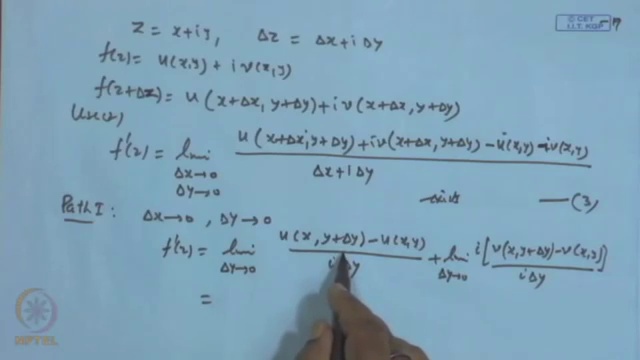 © CET
I.I.T. KGP
Z = x+iy, Δz = Δx+iΔy
f(z) = u(x,y) + i v(x,y)
f(z+Δz) = u(x+Δx, y+Δy) + i v(x+Δx, y+Δy)
f'(z) = lim Δx→0 Δy→0 u(x+Δx, y+Δy) + i v(x+Δx, y+Δy) - u(x,y) - i v(x,y) / Δx + i Δy —(3)
Path I: Δx→0, Δy→0
f'(z) = lim Δy→0 u(x, y+Δy) - u(x,y) / iΔy + lim Δy→0 i[v(x,y+Δy) - v(x,y)] / iΔy
=
NPTEL